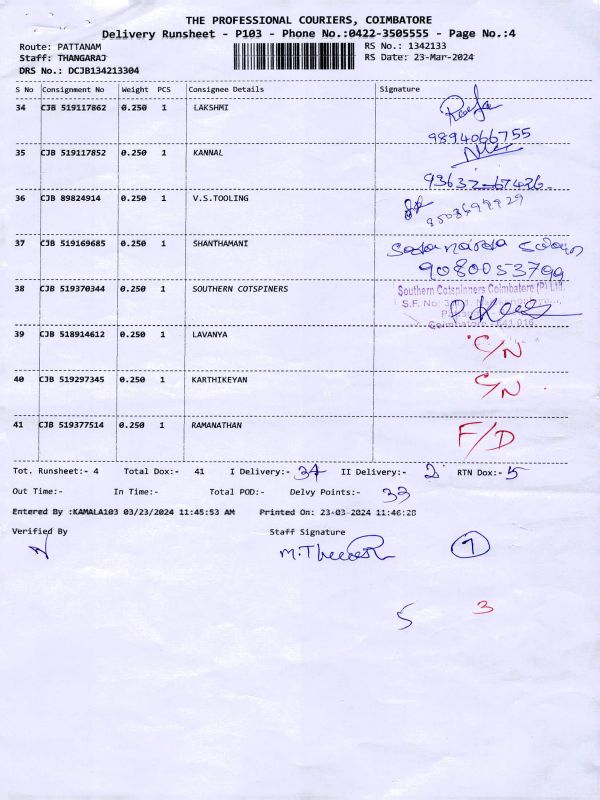 THE PROFESSIONAL COURIERS, COIMBATORE
Delivery Runsheet - P103 - Phone No.:0422-3505555 - Page No.:4
Route: PATTANAM RS No.: 1342133
Staff: THANGARAJ RS Date: 23-Mar-2024
DRS No.: DCJB134213304
S No Consignment No Weight PCS Consignee Details Signature
34 CJB 519117862 0.250 1 LAKSHMI
9894066755
35 CJB 519117852 0.250 1 KANNAL
93632-67426
36 CJB 89824914 0.250 1 V.S.TOOLING
37 CJB 519169685 0.250 1 SHANTHAMANI
9080053799
38 CJB 519370344 0.250 1 SOUTHERN COTSPINERS
Southern Cotspinners Coimbatore (P) Ltd.
S.F. No:
Coimbatore - 641 016.
39 CJB 518914612 0.250 1 LAVANYA C/N
40 CJB 519297345 0.250 1 KARTHIKEYAN C/N
41 CJB 519377514 0.250 1 RAMANATHAN F/D
Tot. Runsheet:- 4 Total Dox:- 41 I Delivery:- 34 II Delivery:- 2 RTN Dox:- 5
Out Time:- In Time:- Total POD:- Delvy Points:- 33
Entered By :KAMALA103 03/23/2024 11:45:53 AM Printed On: 23-03-2024 11:46:28
Verified By Staff Signature
7
5 3